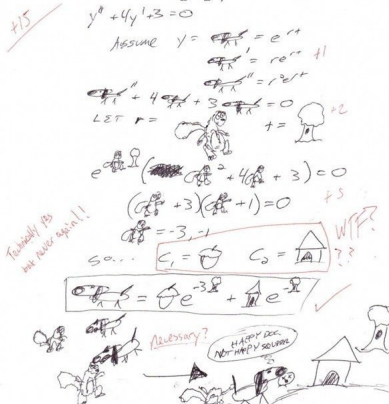 +15
y" + 4y' + 3 = 0
Assume y = = e^rt
' = re^rt +1
" = r²e^rt
" + 4 ' + 3 = 0
LET r = t = +2
e ( ² + 4 + 3) = 0
( + 3)( + 1) = 0 +5
= -3, -1
Technically yes
but never again!!
so... C₁ = C₂ = WTF?
??
= e^-3 + e^-
Necessary?
HAPPY DOG
NOT HAPPY SQUIRREL